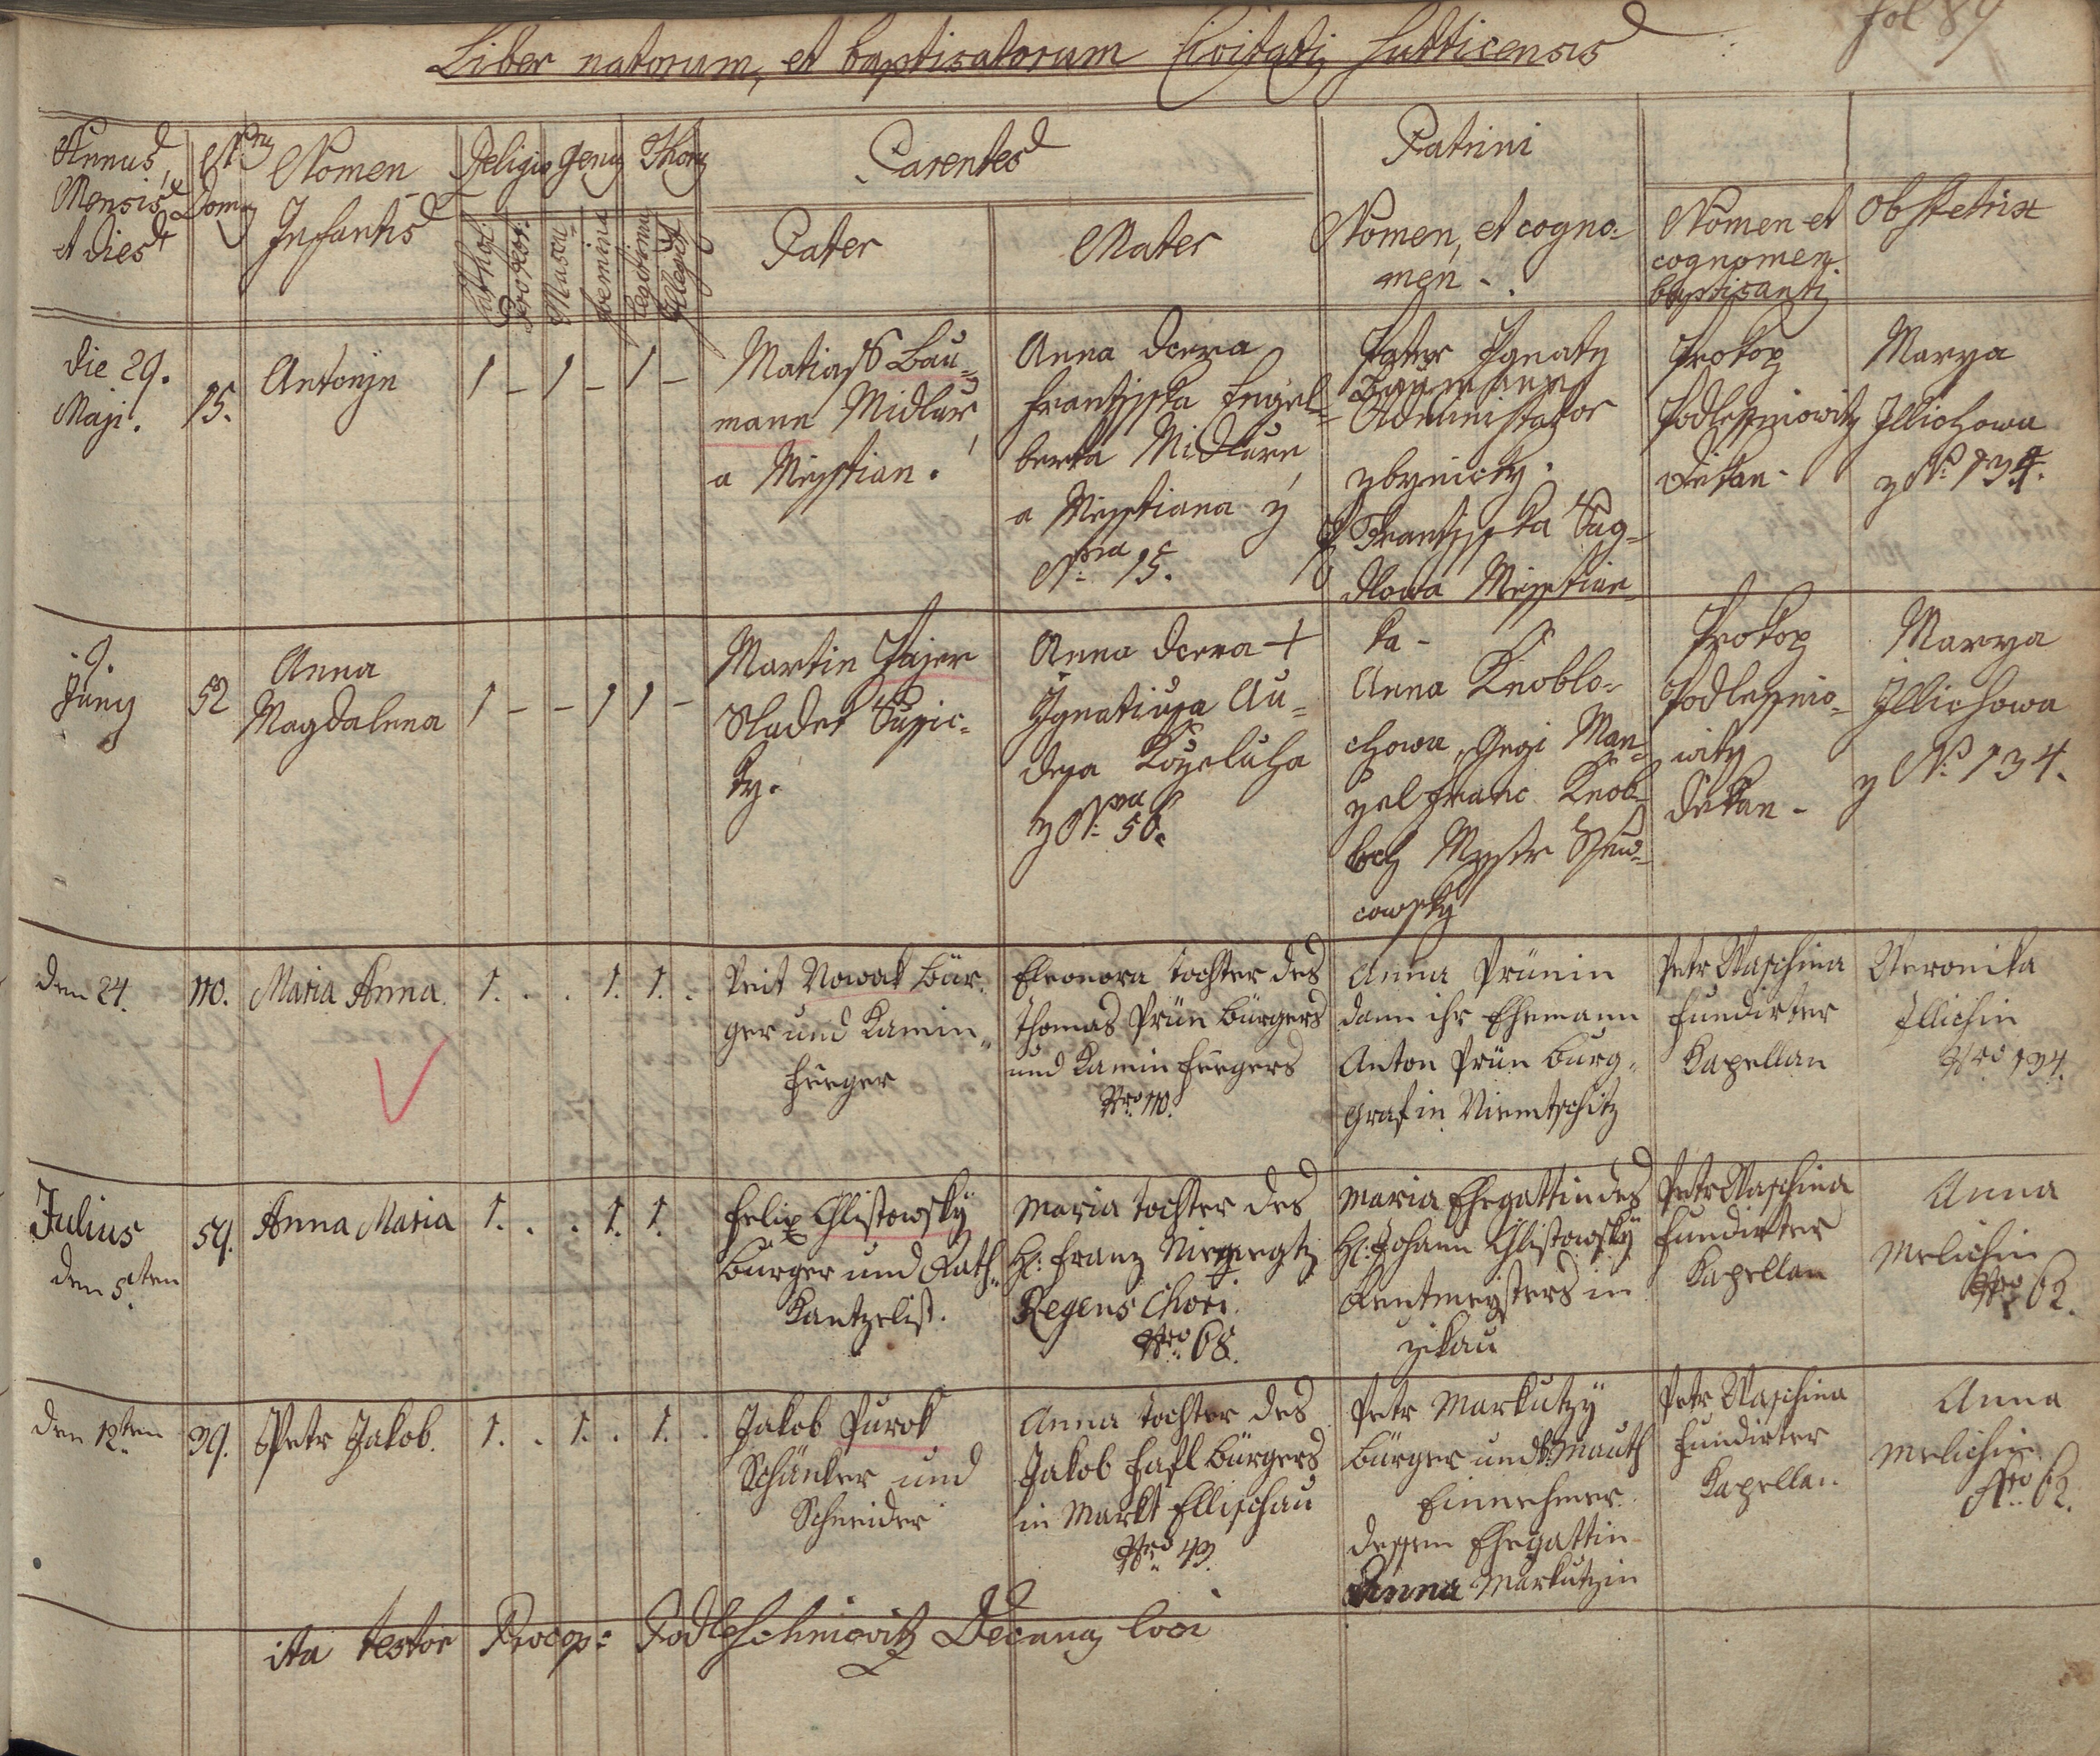 fol 89
Liber natorum, et baptisatorum Civitatis Sutticensis
Annus, Mensis, et dies
Nrus Domus
Nomen Infantis
Religio
Cathol:
Protest:
Genus
Mascu:
Femina
Thorus
Legitimi
Illegit
Parentes
Pater
Mater
Patrini
Nomen, et cogno=
men
Nomen et
cognomen
baptisantis
Obstetrix
die 29.
Maji.
15.
Antonýn
1 - 1 - 1 -
Matiass Bau=
mann Midlarž,
a Miesstian.
Anna dcera
Frantisska Engel=
berta Midlarže
a Miesstiana z
Nra 15.
Pater Ignaty
Baumann
Administrator
zbynicky.
Frantisska Sag=
dlowa Miesstian=
ka -
Prokop
Podlessniowitz
Diekan -
Marya
Illichowa
z N: 134.
9.
Juny
52
Anna
Magdalena
1 - - 1 1 -
Martin Hajer
Sladek Sussic=
ky.
Anna dcera +
Ignatiusa Au=
desa Koželuha
z Nra 50.
Anna Knoblo=
chowa, Gegi Man=
žel Franc Knob=
loch Mystr Ssew=
cowsky
Prokop
Podlessnio=
witz
Diekan -
Marya
Illichowa
z N: 134.
den 24.
110.
Maria Anna.
1. . . 1. 1. .
Veit Nowak Bür=
ger und Kamin=
feger
Eleonora Tochter des
Thomas Prün Bürgers
und Kaminfegers
Nro 110.
Anna Prünin
dann ihr Ehemann
Anton Prün Burg=
graf in Niemtschitz
Petr Waschina
Fundirter
Kapellan
Veronika
Illichin
Nro 134.
Julius
den 5ten
59.
Anna Maria
1. . . 1. 1.
Felix Chlistowsky
Bürger und Rath=
Kantzelist.
Maria Tochter des
H: Franz
Regens Chori.
Nro 68.
Maria Ehegattin des
H: Johann Chlistowsky
Rentmeisters in
Zikau
Petr Waschina
Fundirter
Kapellan
Anna
Melichin
Nro 62.
den 12ten
39.
Petr Jakob.
1. . 1. . 1. .
Jakob Purok
Schänker und
Schneider
Anna Tochter des
Jakob Hasl Bürgers
in Markt Ellischau
Nro 43.
Petr Markutzy
Bürger und Mauth
Einnehmer.
dessen Ehegattin
Anna Markutzin
Petr Waschina
Fundirter
Kapellan.
Anna
Melichin
Nro 62.
ita testor Procop: Podleschniowitz Decanus loci